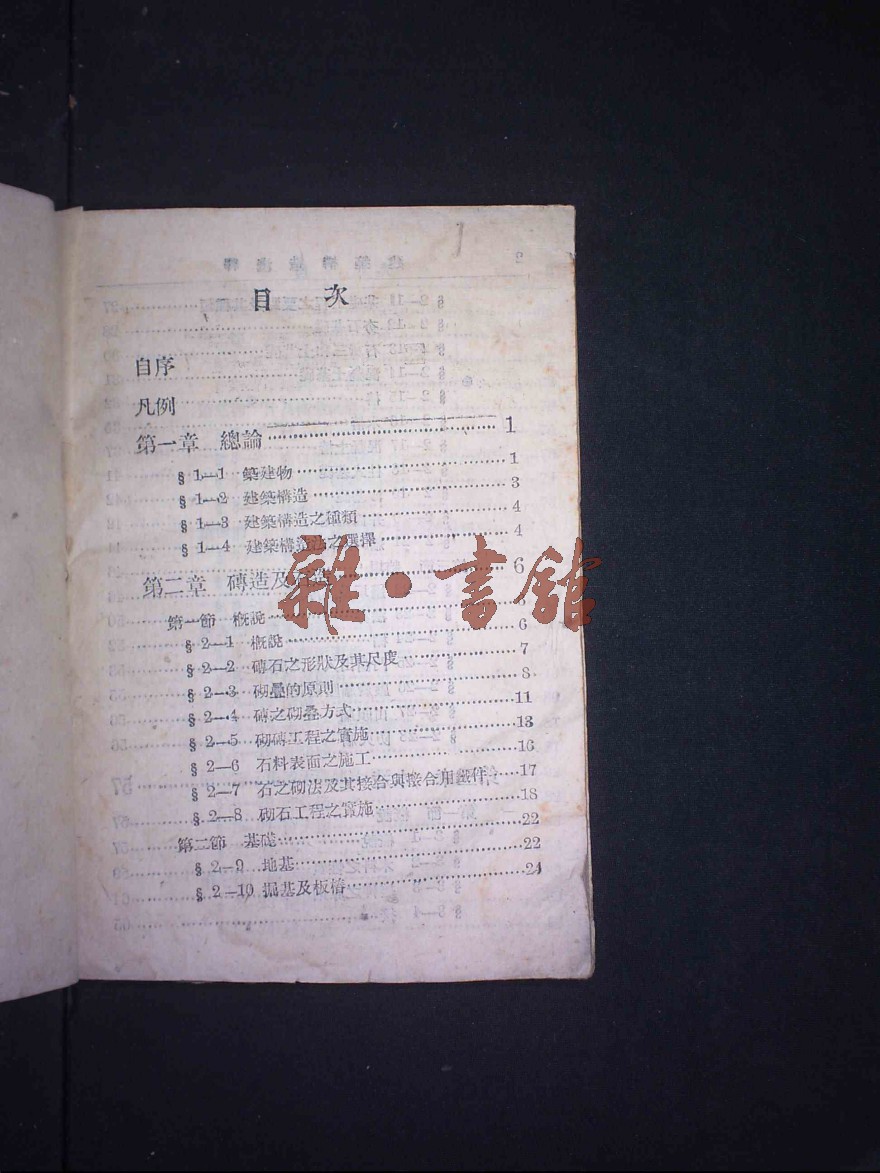 目 次
自序
凡例
第一章 總論 1
§ 1—1 築建物 1
§ 1—2 建築構造 3
§ 1—3 建築構造之種類 4
§ 1—4 建築構造法之選擇 4
第二章 磚造及石造 6
雜·書館
第一節 槪說 6
§ 2—1 槪說 6
§ 2—2 磚石之形狀及其尺度 7
§ 2—3 砌疊的原則 8
§ 2—4 磚之砌疊方式 11
§ 2—5 砌磚工程之實施 13
§ 2—6 石料表面之施工 16
§ 2—7 石之砌法及其接合與接合用鐵件 17
§ 2—8 砌石工程之實施 18
第二節 基礎 22
§ 2—9 地基 22
§ 2—10 掘基及板樁 24